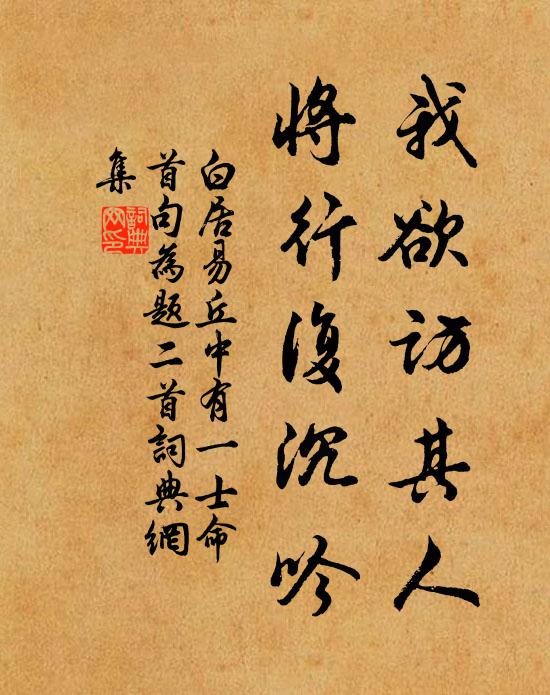 我欲訪其人
將行復沉吟
白居易丘中有一士命
首句為題二首詞典網
集
詞典
网印